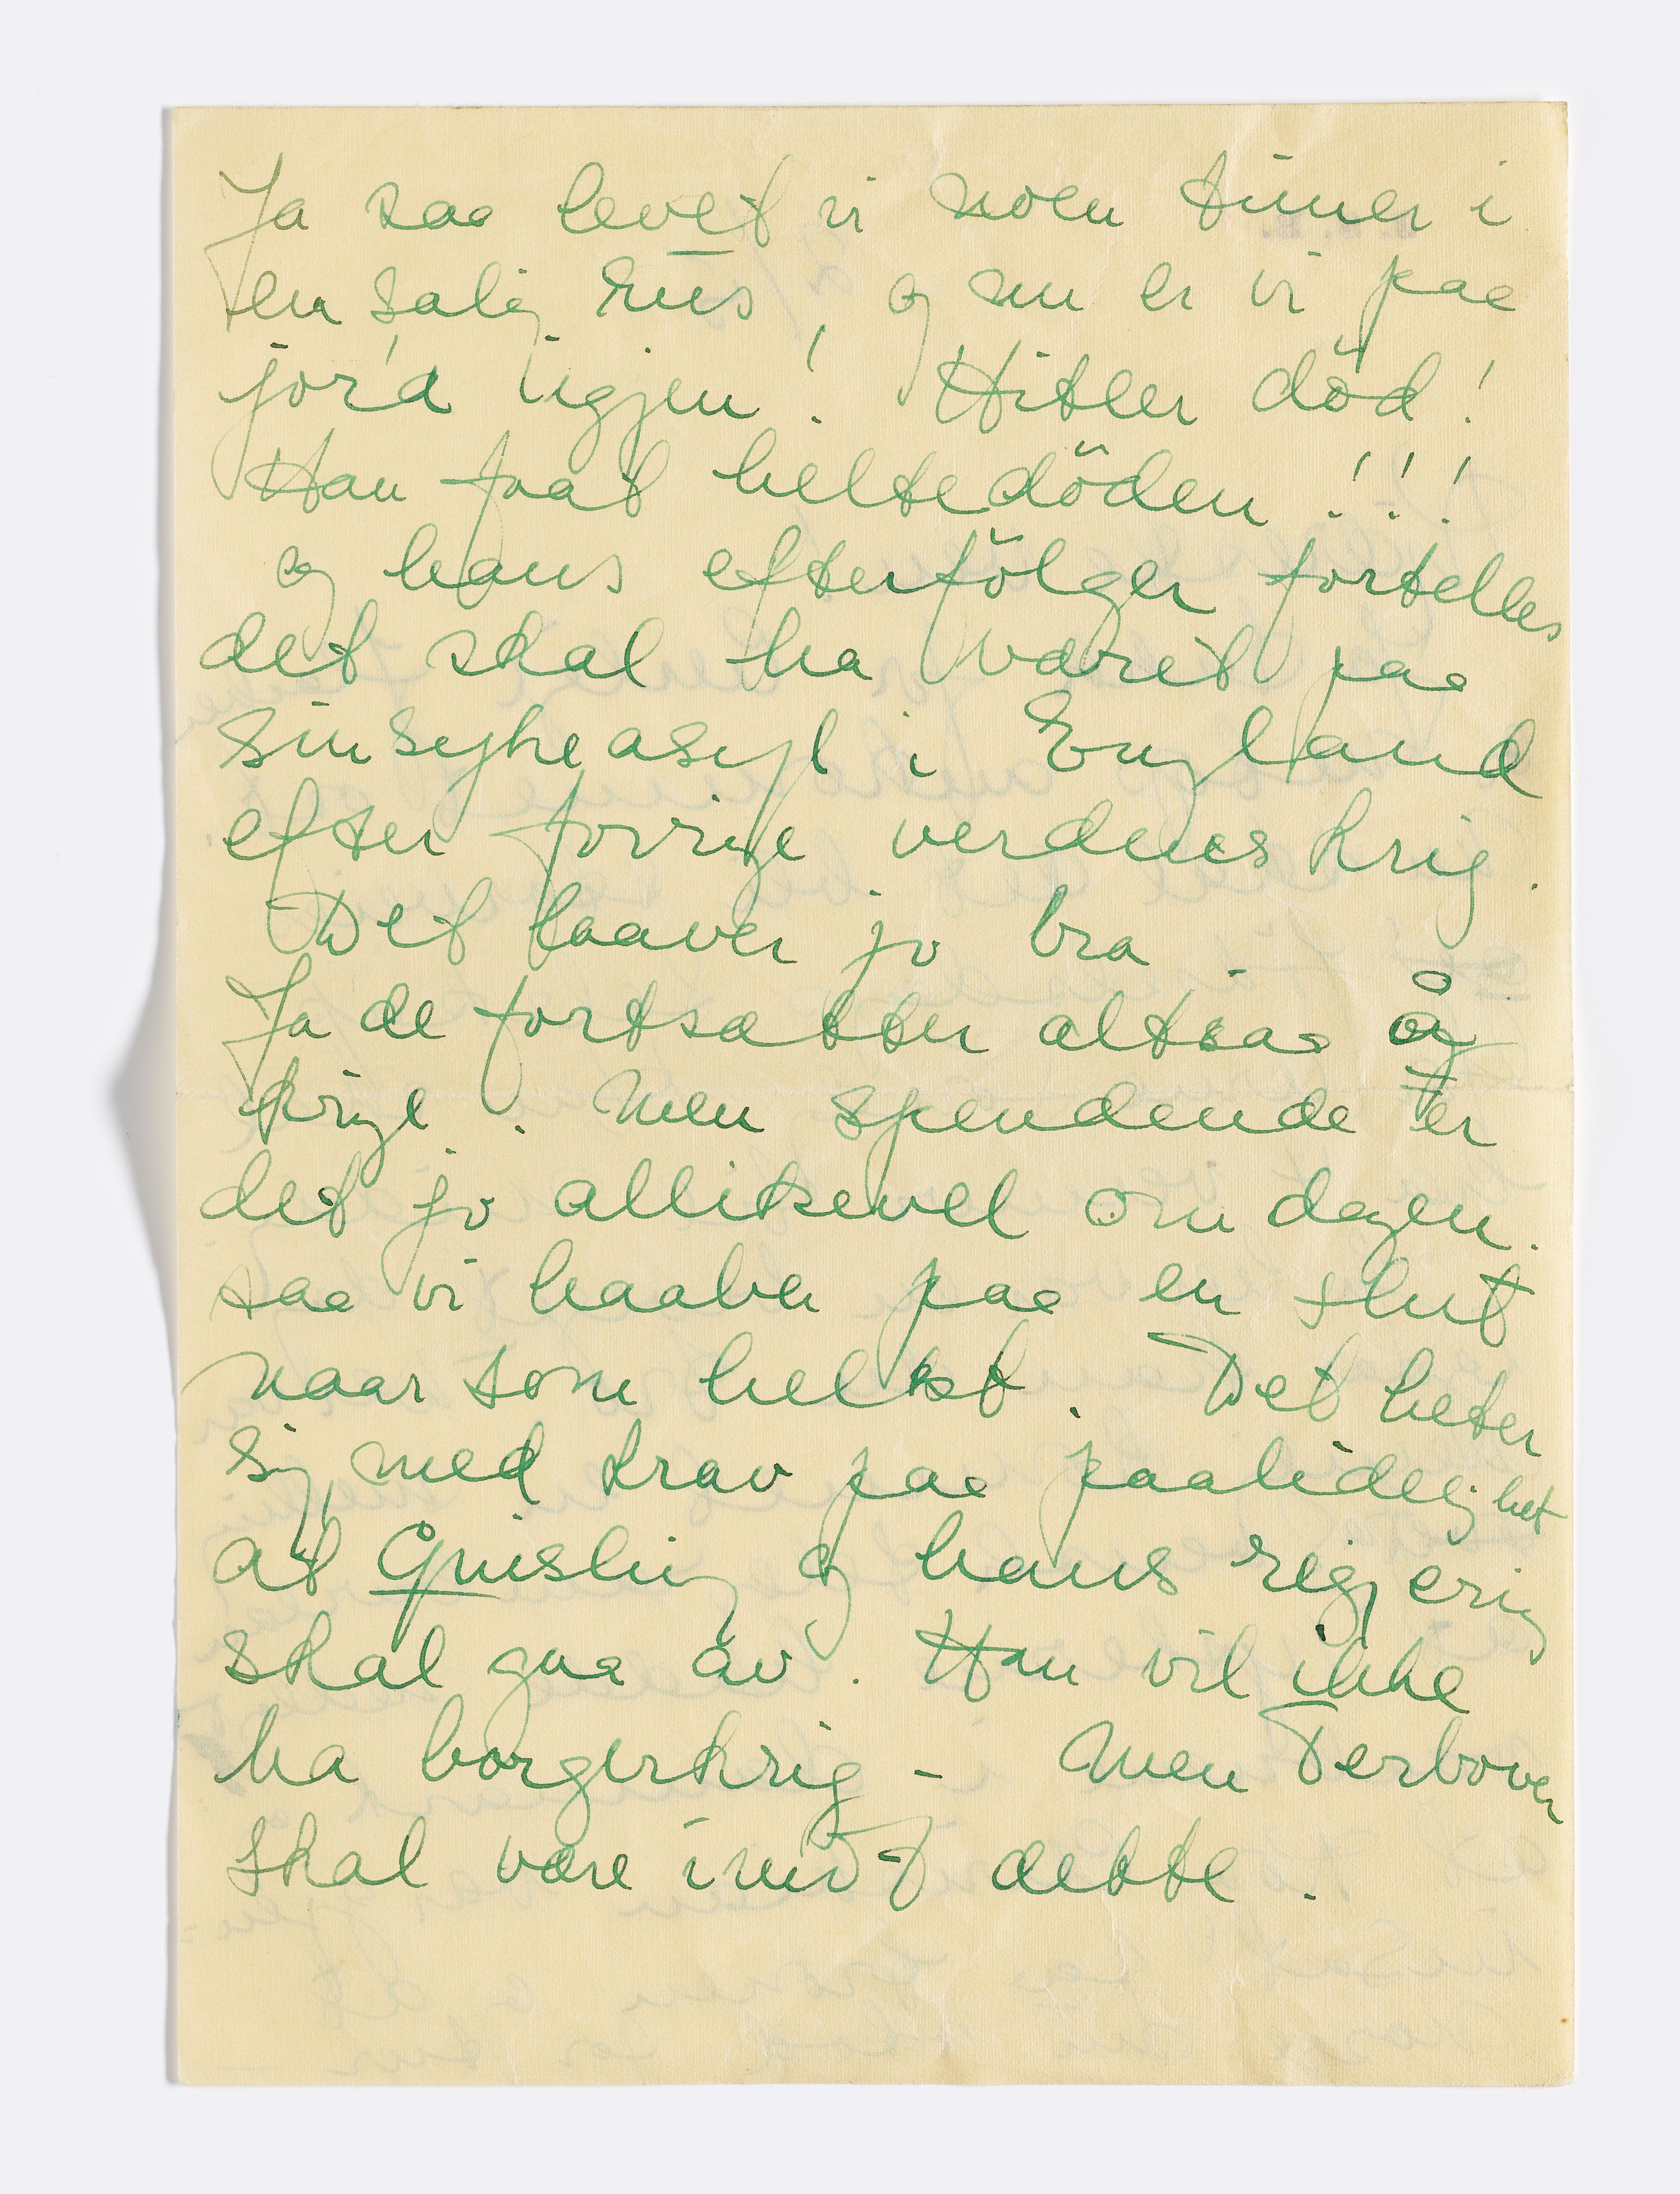 Ja saa levet vi noen timer i
en salig rus, og nu er vi paa
jorda igjen! Hitler död!
Han faat heltedöden!!!
og hans efterfölger fortelles
det skal ha været paa
sinsykeasyl i England
efter forrige verdneskrig.
Det laaver jo bra.
Ja de fortsætter altsaa å
krige. Men spendende er
det jo allikevel om dagen.
saa vi haaber paa en slut
naar som helst. Det heter
sig med krav paa paalidelighet
at Quisling og hans regjering
skal gaa av. Han vil ikke
ha borgerkrig - Men Terboven
skal være imot dette.